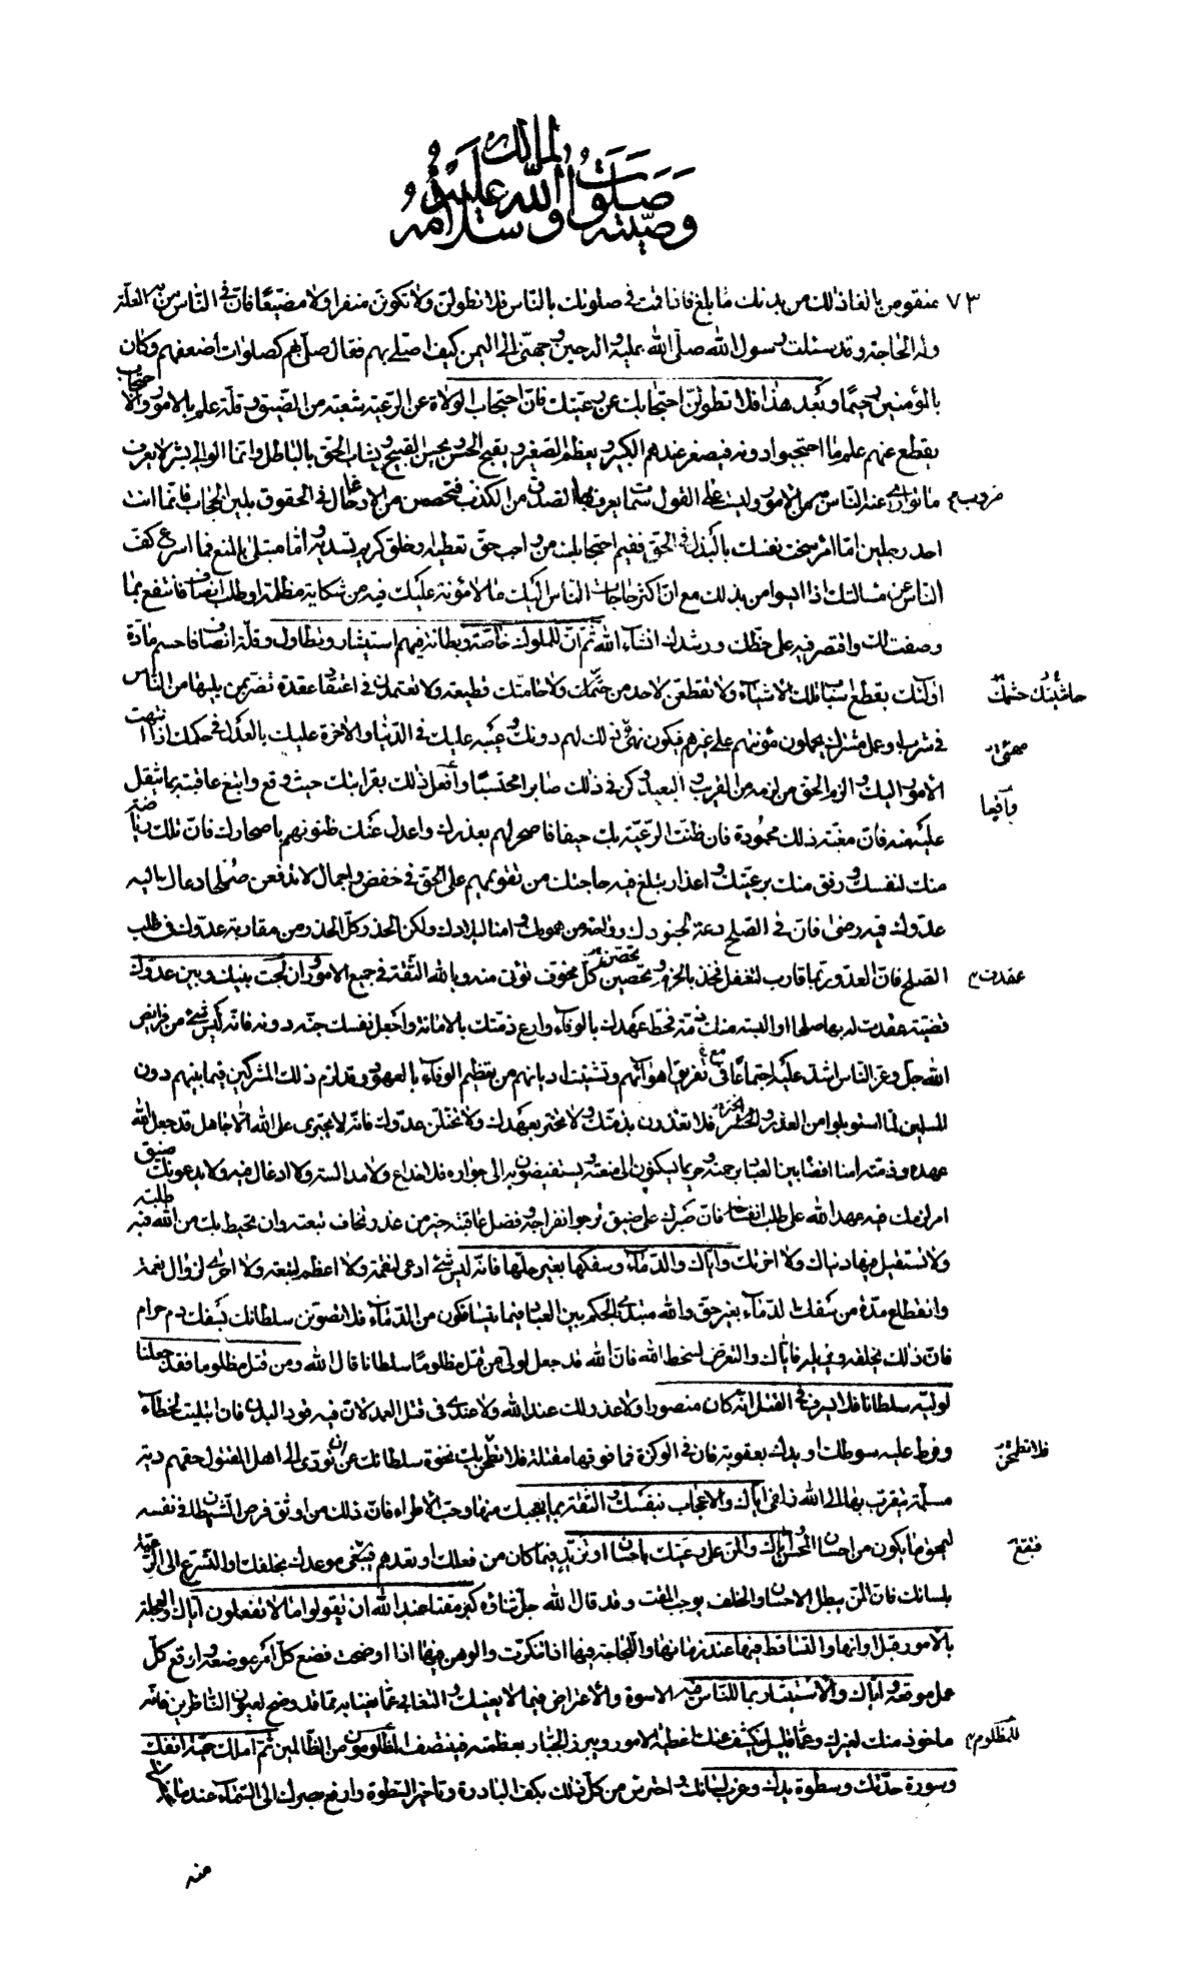 لمالك
صلوات الله عليه
وصيته وسلامه
٧٣ منقوص بالغا ذلك من بدنك ما بلغ فاذا قمت فى صلوتك بالناس فلا تطولن ولا تكونن منفرا ولا مضيعا فان فى الناس من به العلة
وله الحاجة وقد سئلت رسول الله صلى الله عليه واله حين وجهنى الى اليمن كيف اصلى بهم فقال صل بهم كصلوات أضعفهم وكان
بالمؤمنين رحيما وبعد هذا فلا تطولن احتجابك عن رعيتك فان احتجاب الولاة عن الرعية شعبة من الضيق وقلة علم بالامور والاحتجاب
يقطع عنهم علم ما احتجبوا دونه فيصغر عندهم الكبير ويعظم الصغير ويقبح الحسن ويحسن القبيح ويشاب الحق بالباطل وانما الوالى بشر لا يعرف
ما توارى عنه الناس به من الامور وليست على القول سمات يعرف بها الصدق من الكذب فتحصن من الادخال فى الحقوق بلين الحجاب فانما انت
ضروب
احد رجلين اما امرؤ سخت نفسك بالبذل فى الحق ففيم احتجابك من واجب حق تعطيه او خلق كريم تسديه واما مبتلى بالمنع فما اسرع كف
الناس عن مسالتك اذا ايسوا من بذلك مع ان اكثر حاجات الناس اليك ما لا مؤنة عليك فيه من شكاية مظلمة او طلب انصاف فانتفع بما
وصفت لك واقتصر فيه على حظك ورشدك انشاء الله ثم ان للملوك خاصة وبطانة فيهم استيثار وتطاول وقلة انصاف فاحسم مادة
اولئك بقطع اسباب تلك الاشياء ولا تقطعن لاحد من حشمك ولا حامتك قطيعة ولا تعتمدن فى اعتقاد عقدة تضر بمن يليها من الناس
حاشيتك حشمك
فى شرب او عمل مشترك يحملون مؤنتهم على غيرهم فيكون مهنؤ ذلك لهم دونك وعيبه عليك فى الدنيا والاخرة عليك بالعدل فى حكمك اذا انتهت
مهنى
الامور اليك والزم الحق من لزمه من القريب والبعيد وكن فى ذلك صابرا محتسبا وافعل ذلك بقرابتك حيث وقع وابتغ عاقبته بما يثقل
واقعا
عليك منه فان مغبة ذلك محمودة فان ظنت الرعية بك حيفا فاصحر لهم بعذرك واعدل عنك ظنونهم باصحارك فان تلك رياضة
منك لنفسك ورفق منك برعيتك واعذار تبلغ فيه حاجتك من تقويمهم على الحق فى خفض واجمال لا تدفعن صلحا دعاك اليه
عدوك فيه رضى فان فى الصلح دعة لجنودك وراحة من همومك وامنا لبلادك ولكن الحذر كل الحذر من مقاربة عدوك فى طلب
الصلح فان العدو ربما قارب لتغفل فخذ بالحزم وتحصين كل مخوف تؤتى منه وبالله الثقة فى جميع الامور وان لجت بينك وبين عدوك
عقدت
قضية عقدت له بها صلحا او البسته منك ذمة فحط عهدك بالوفاء وارع ذمتك بالامانة واجعل نفسك جنة دونه فانه ليس شئ من فرايض
الله جل وعز الناس اشد عليه اجتماعا فى تفريق اهوائهم وتشتيت اديانهم من تعظيم الوفاء بالعهود وقد لزم ذلك المشركين فيما بينهم دون
المسلمين لما استوبلوا من الغدر والختر فلا تغدرن بذمتك ولا تختر بعهدك ولا تختلن عدوك فانه لا يجترى على الله الا جاهل قد جعل الله
عهده وذمته امنا افضاه بين العباد برحمته وحريما يسكنون الى منعته ويستفيضون به الى جواره فلا خداع ولا مدالسة ولا ادغال فيه ولا يدعونك ضيق
امر لزمك فيه عهد الله على طلب انفساخه فان صبرك على ضيق ترجو انفراجه وفضل عاقبته خير من غدر تخاف تبعته وان تحيط بك من الله فيه طلبته
ولا تستقيل فيها دنياك ولا اخرتك واياك والدماء وسفكها بغير حلها فانه ليس شئ ادعى لنقمة ولا اعظم لتبعة ولا احرى لزوال نعمة
وانقطاع مدة من سفك الدماء بغير حق والله مبتدئ بالحكم بين العباد فيما يتسافكون من الدماء فلا تصونن سلطانك بسفك دم حرام
فان ذلك يخلقه ويزيله فاياك والتعرض لسخط الله فان الله قد جعل لولى من قتل مظلوما سلطانا قال الله ومن قتل مظلوما فقد جعلنا
لوليه سلطانا فلا يسرف فى القتل انه كان منصورا ولا عذر لك عند الله ولا عندى فى قتل العمد لان فيه قود البدن فان ابتليت بخطاء
وفرط عليه سوطك او يدك بعقوبة فان فى الوكزة فما فوقها مقتلة فلا تطمحن بك نخوة سلطانك عن ان تؤدى الى اهل المقتول حقهم دية
فلا تطمحن
مسلمة يتقرب بها الى الله زلفى اياك والاعجاب بنفسك والثقة بما يعجبك منها وحب الاطراء فان ذلك من اوثق فرص الشيطان فى نفسه
ليمحق ما يكون من احسان المحسن اياك والمن على رعيتك باحسان او تزيد فيما كان من فعلك او تعدهم فتتبع موعدك بخلفك والتسرع الى الرعية
فتتبع
بلسانك فان المن يبطل الاحسان والخلف يوجب المقت وقد قال الله جل ثناؤه كبر مقتا عند الله ان تقولوا ما لا تفعلون اياك والعجلة
بالامور قبل اوانها والتساقط فيها عند زمانها واللجاجة فيها اذا تنكرت والوهن فيها اذا اوضحت فضع كل امر موضعه واوقع كل
عمل موقعه واياك والاستيثار بما للناس فيه الاسوة والاعتراض فيما لا يعنيك والتغابى عما يعنى به مما قد وضح لعيون الناظرين فانه
ماخوذ منك لغيرك وعما قليل يكشف عنك اغطية الامور ويبرز الجبار بعظمته فينتصف المظلومون من الظالمين ثم املك حمية انفك
للمظلوم
وسورة حدتك وسطوة يدك وغرب لسانك واحترس من كل ذلك بكف البادرة وتاخير السطوة وارفع بصرك الى السماء عند ما
منه